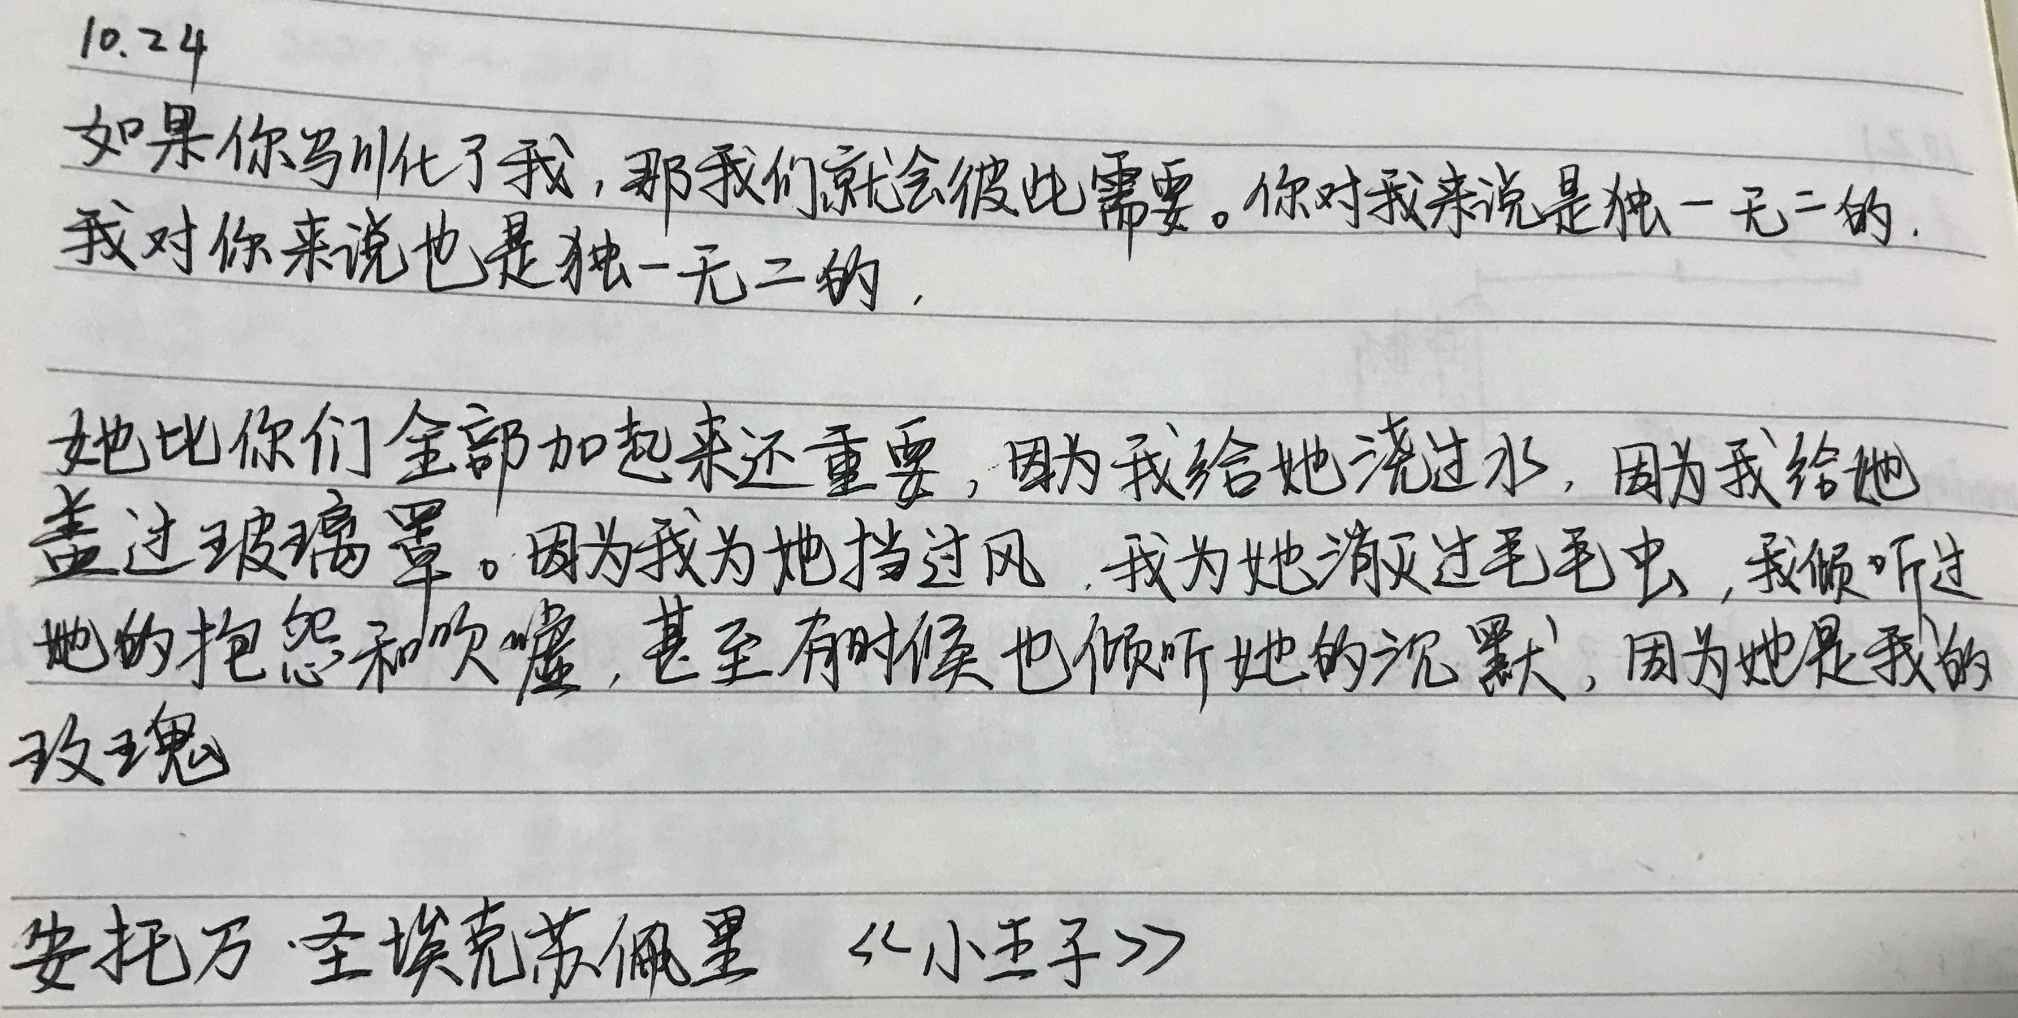 10.24
如果你驯化了我,那我们就会彼此需要。你对我来说是独一无二的.
我对你来说也是独一无二的,
她比你们全部加起来还重要,因为我给她浇过水,因为我给她
盖过玻璃罩。因为我为她挡过风,我为她消灭过毛毛虫,我倾听过
她的抱怨和吹嘘,甚至有时候也倾听她的沉默,因为她是我的
玫瑰
安托万·圣埃克苏佩里 <<小王子>>